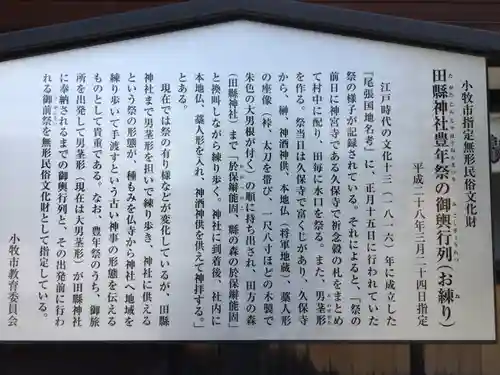 小牧市指定無形民俗文化財
田縣神社豊年祭の御輿行列(お練り)
平成二十八年三月二十四日指定
江戸時代の文化十三(一八一六)年に成立した
『尾張国地名考』に、正月十五日に行われていた
祭の様子が記録されている。それによると、「祭の
前日に神宮寺である久保寺で祈念穀の札をまとめ
て村中に配り、田毎に水口を祭る。また、男茎形
を作る。祭当日は久保寺で富くじがあり、久保寺
から、榊、神酒神供、本地仏(将軍地蔵)、藁人形
の座像(裃、太刀を帯び、一尺八寸ほどの木製で
朱色の大男根が付く)の順に持ち出され、田方の森
(田縣神社)まで「於保辧能固、縣の森の於保辧能固」
と換叫しながら練り歩く。神社に到着後、社内に
本地仏、藁人形を入れ、神酒神供を供えて神拝する。」
とある。
現在では祭の有り様などが変化しているが、田縣
神社まで男茎形を担いで練り歩き、神社に供える
という祭の形態が、種もみを仏寺から神社へ地域を
練り歩いて手渡すという古い神事の形態を伝える
ものとして貴重である。なお、豊年祭のうち、御旅
所を出発して男茎形(現在は大男茎形)が田縣神社
に奉納されるまでの御輿行列と、その出発前に行わ
れる御前祭を無形民俗文化財として指定している。
小牧市教育委員会